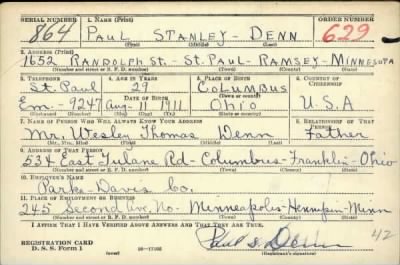 SERIAL NUMBER 1. NAME (Print) ORDER NUMBER
864 PAUL STANLEY - DENN 629
(First) (Middle) (Last)
2. ADDRESS (Print)
1652 RANDOLPH St. - St. PAUL - RAMSEY - MINNESOTA
(Number and street or R. F. D. number) (Town) (County) (State)
3. TELEPHONE 4. AGE IN YEARS 5. PLACE OF BIRTH 6. COUNTRY OF CITIZENSHIP
St. Paul 29 COLUMBUS
DATE OF BIRTH (Town or county)
Em. - 9247 Aug. 11 1911 Ohio U.S.A
(Exchange) (Number) (Mo.) (Day) (Yr.) (State or country)
7. NAME OF PERSON WHO WILL ALWAYS KNOW YOUR ADDRESS 8. RELATIONSHIP OF THAT PERSON
Mr. Wesley Thomas Denn Father
(Mr., Mrs., Miss) (First) (Middle) (Last)
9. ADDRESS OF THAT PERSON
534 East Tulane Rd - Columbus - Franklin - Ohio
(Number and street or R. F. D. number) (Town) (County) (State)
10. EMPLOYER'S NAME
Parke - Davis Co.
11. PLACE OF EMPLOYMENT OR BUSINESS
245 Second Ave. No. - Minneapolis - Hennepin - Minn
(Number and street or R. F. D. number) (Town) (County) (State)
I AFFIRM THAT I HAVE VERIFIED ABOVE ANSWERS AND THAT THEY ARE TRUE.
REGISTRATION CARD
D. S. S. Form 1 Paul S. Denn 42